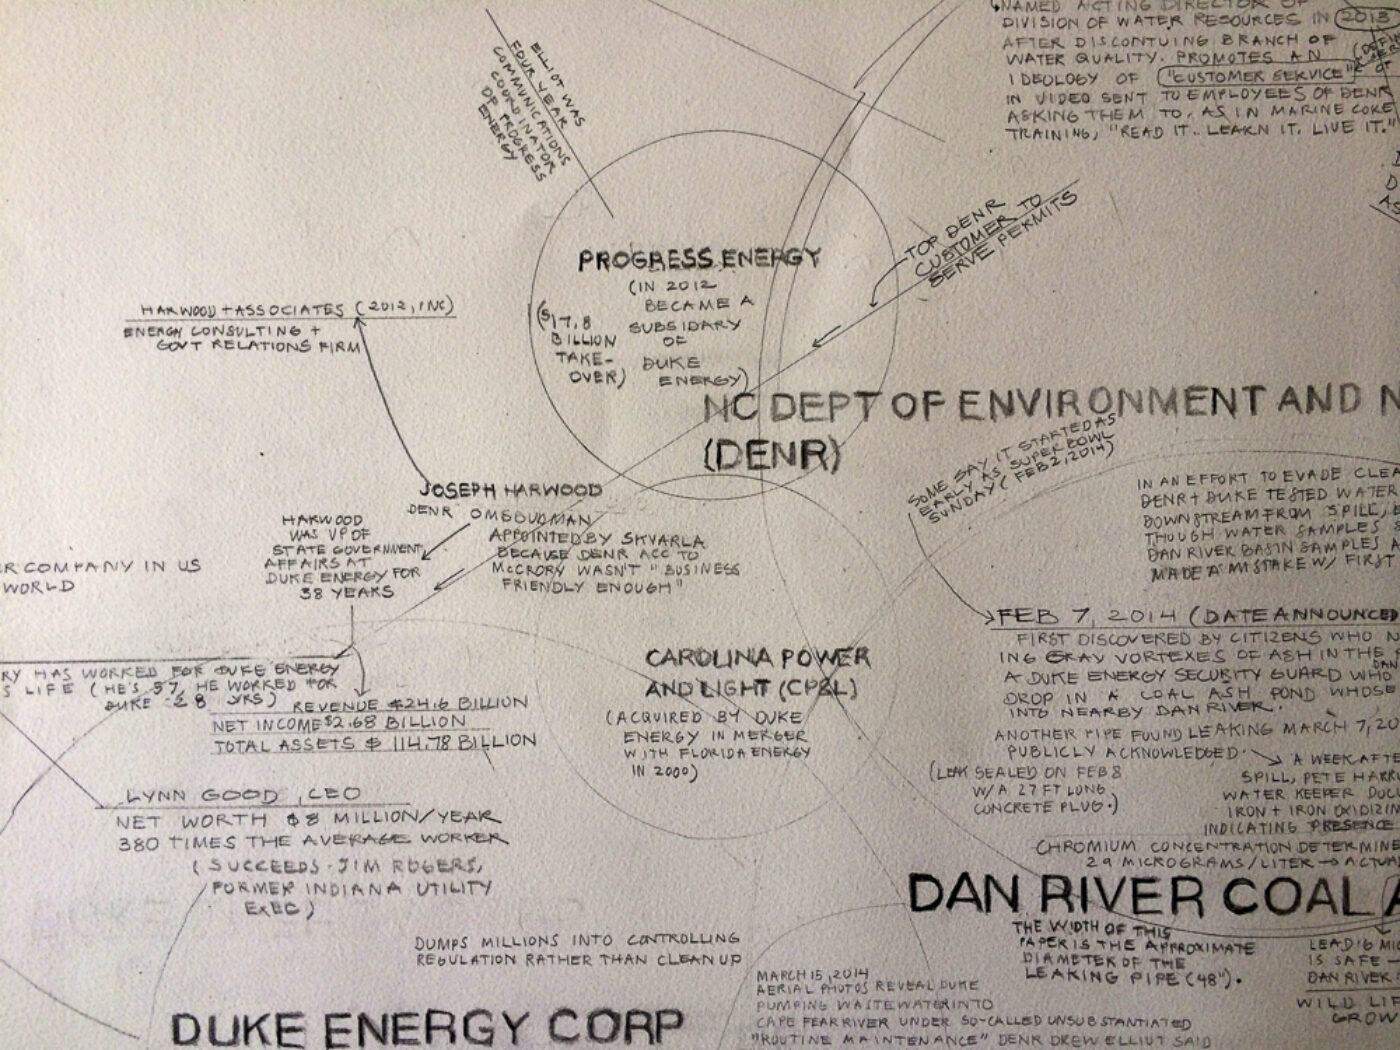 NAMED ACTING DIRECTOR OF
DIVISION OF WATER RESOURCES IN 2013
AFTER DISCONTUING BRANCH OF
WATER QUALITY. PROMOTES AN
IDEOLOGY OF "CUSTOMER SERVICE"
IN VIDEO SENT TO EMPLOYEES OF DENR
ASKING THEM TO, AS IN MARINE CORE
TRAINING, "READ IT.. LEARN IT. LIVE IT."
ELLIOT WAS
FOUR YEAR
COMMUNICATIONS
COORDINATOR
OF PROGRESS
ENERGY
PROGRESS ENERGY
(IN 2012
BECAME A
SUBSIDARY
OF
DUKE
ENERGY)
($17.8
BILLION
TAKE-
OVER)
TOP DENR
CUSTOMER TO
SERVE PERMITS
HARWOOD + ASSOCIATES (2012, INC)
ENERGY CONSULTING +
GOVT RELATIONS FIRM
NC DEPT OF ENVIRONMENT AND N
(DENR)
SOME SAY IT STARTED AS
EARLY AS SUPERBOWL
SUNDAY (FEB 2, 2014)
JOSEPH HARWOOD
DENR OMBUDMAN
APPOINTED BY SKVARLA
BECAUSE DENR ACC TO
McCRORY WASN'T "BUSINESS
FRIENDLY ENOUGH"
HARWOOD
WAS VP OF
STATE GOVERNMENT
AFFAIRS AT
DUKE ENERGY FOR
38 YEARS
IN AN EFFORT TO EVADE CLEA
DENR + DUKE TESTED WATER
DOWNSTREAM FROM SPILL,
THOUGH WATER SAMPLES
DAN RIVER BASIN SAMPLES A
MADE A MISTAKE W/ FIRST
R COMPANY IN US
WORLD
FEB 7, 2014 (DATE ANNOUNCED
FIRST DISCOVERED BY CITIZENS WHO N
ING GRAY VORTEXES OF ASH IN THE
DAN
A DUKE ENERGY SECURITY GUARD WHO
DROP IN A COAL ASH POND WHOSE
INTO NEARBY DAN RIVER.
ANOTHER PIPE FOUND LEAKING MARCH 7, 20
PUBLICLY ACKNOWLEDGED.
(LEAK SEALED ON FEB 8
W/A 27 FT LONG
CONCRETE PLUG.)
A WEEK AFTE
SPILL, PETE HARRI
WATER KEEPER DOCU
IRON + IRON OXIDIZIN
INDICATING PRESENCE
CHROMIUM CONCENTRATION DETERMINE
29 MICROGRAMS/LITER → ACTUA
CAROLINA POWER
AND LIGHT (CP&L)
(ACQUIRED BY DUKE
ENERGY IN MERGER
WITH FLORIDA ENERGY
IN 2000)
RY HAS WORKED FOR DUKE ENERGY
S LIFE (HE'S 57, HE WORKED FOR
DUKE 28 YRS)
REVENUE $24.6 BILLION
NET INCOME $2.68 BILLION
TOTAL ASSETS $ 114.78 BILLION
LYNN GOOD, CEO
NET WORTH $8 MILLION/YEAR
380 TIMES THE AVERAGE WORKER
(SUCCEEDS JIM ROGERS,
FORMER INDIANA UTILITY
EXEC)
DUMPS MILLIONS INTO CONTROLLING
REGULATION RATHER THAN CLEAN UP
DUKE ENERGY CORP
DAN RIVER COAL A
THE WIDTH OF THIS
PAPER IS THE APPROXIMATE
DIAMETER OF THE
LEAKING PIPE (48").
LEAD 6 MI
IS SAFE —
DAN RIVER
WILD LI
GROW
MARCH 15, 2014
AERIAL PHOTOS REVEAL DUKE
PUMPING WASTEWATER INTO
CAPE FEAR RIVER UNDER SO-CALLED UNSUBSTANTIATED
"ROUTINE MAINTENANCE" DENR DREW ELLIOT SAID